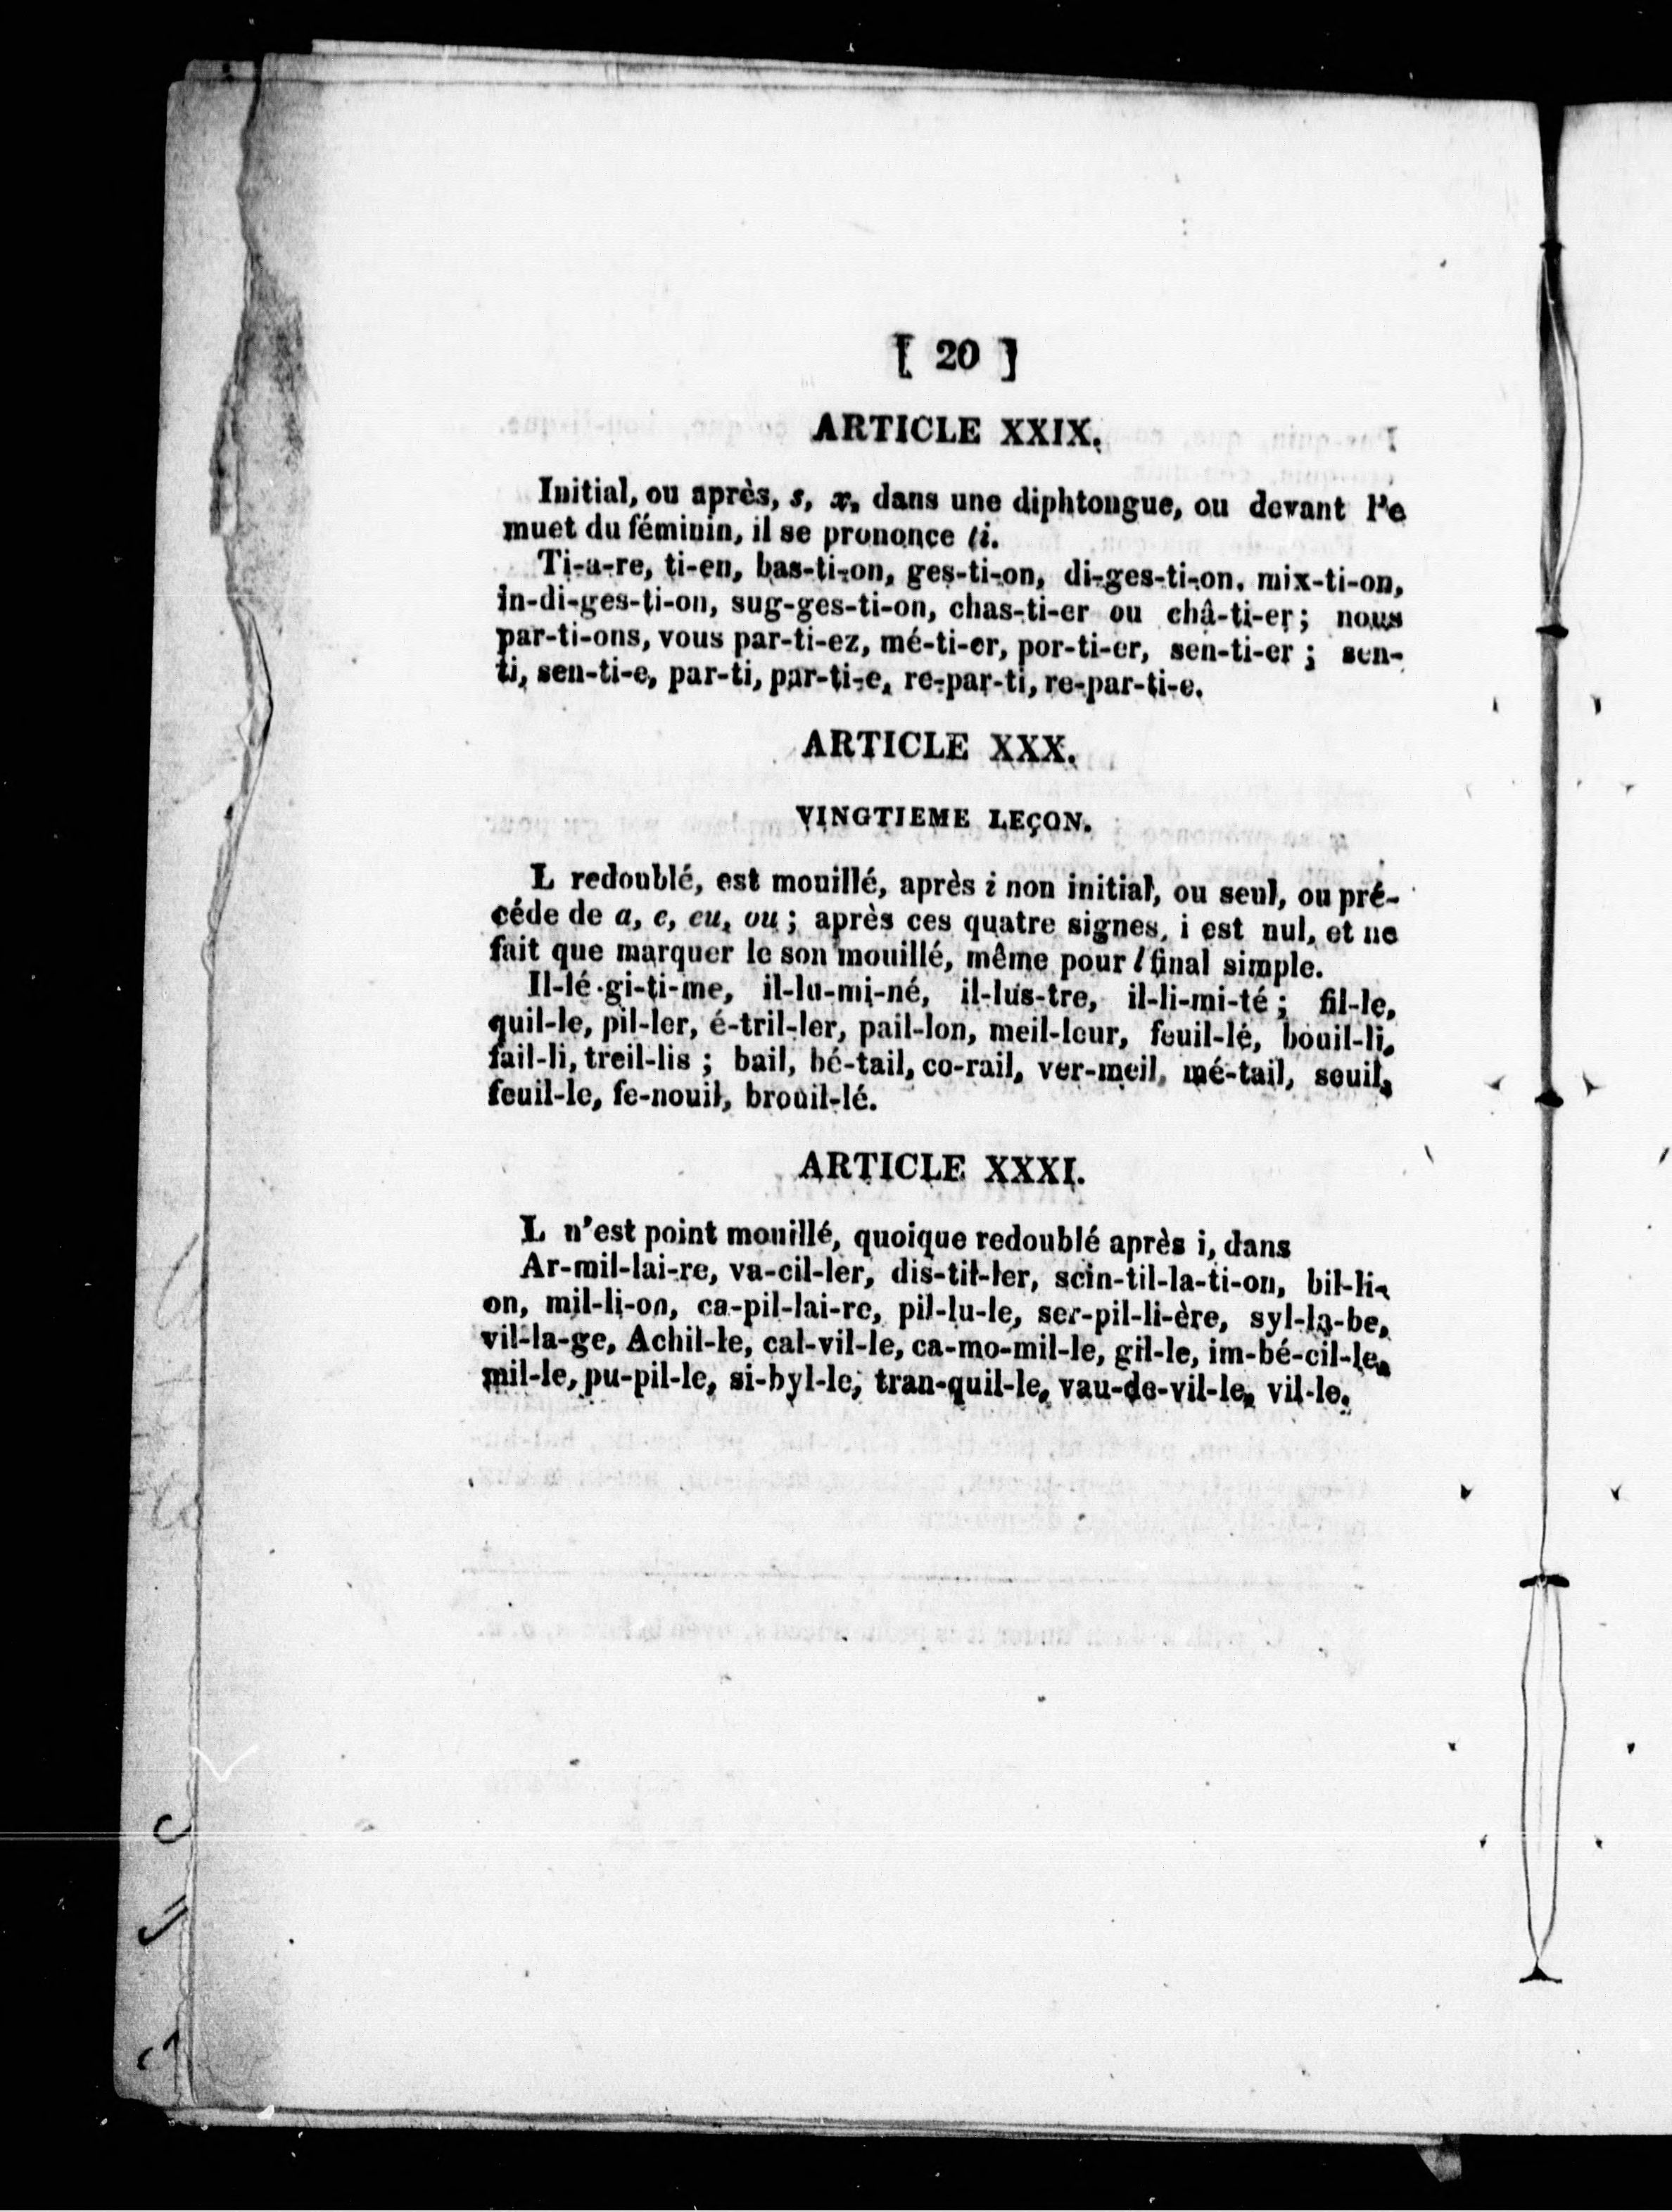 [ 20 ]
ARTICLE XXIX.
Initial, ou après, s, x, dans une diphtongue, ou devant l'e
muet du féminin, il se prononce ti.
Ti-a-re, ti-en, bas-ti-on, ges-ti-on, di-ges-ti-on, mix-ti-on,
in-di-ges-ti-on, sug-ges-ti-on, chas-ti-er ou châ-ti-er; nous
par-ti-ons, vous par-ti-ez, mé-ti-er, por-ti-er, sen-ti-er ; sen-
ti, sen-ti-e, par-ti, par-ti-e, re-par-ti, re-par-ti-e.
ARTICLE XXX.
VINGTIEME LEÇON.
L redoublé, est mouillé, après i non initial, ou seul, ou pré-
céde de a, e, eu, ou ; après ces quatre signes, i est nul, et ne
fait que marquer le son mouillé, même pour l final simple.
Il-lé-gi-ti-me, il-lu-mi-né, il-lus-tre, il-li-mi-té ; fil-le,
quil-le, pil-ler, é-tril-ler, pail-lon, meil-leur, feuil-lé, bouil-li,
fail-li, treil-lis ; bail, bé-tail, co-rail, ver-meil, mé-tail, seuil,
feuil-le, fe-nouil, brouil-lé.
ARTICLE XXXI.
L n'est point mouillé, quoique redoublé après i, dans
Ar-mil-lai-re, va-cil-ler, dis-til-ler, scin-til-la-ti-on, bil-li-
on, mil-li-on, ca-pil-lai-re, pil-lu-le, ser-pil-li-ère, syl-la-be,
vil-la-ge, Achil-le, cal-vil-le, ca-mo-mil-le, gil-le, im-bé-cil-le,
mil-le, pu-pil-le, si-byl-le, tran-quil-le, vau-de-vil-le, vil-le.